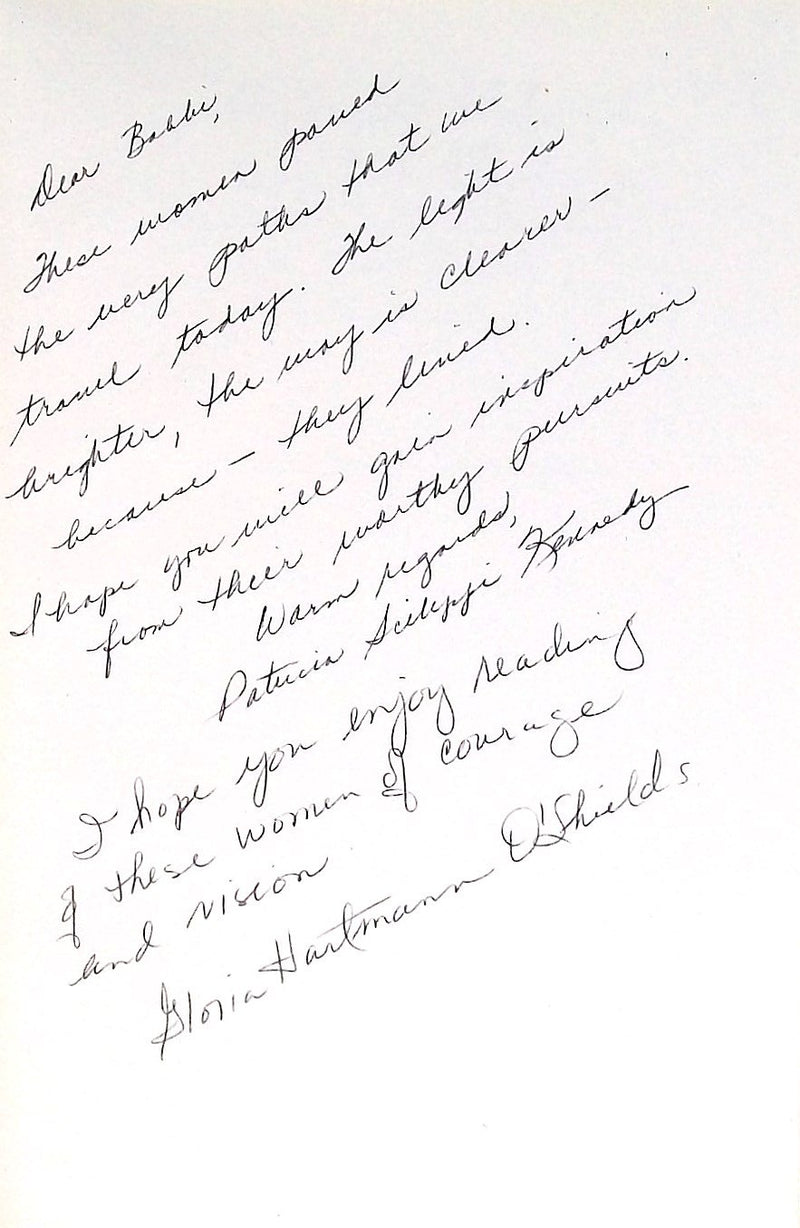 Dear Bobbi,
These women paved
the very paths that we
travel today. The light is
brighter, the way is clearer –
because – they lived.
I hope you will gain inspiration
from their worthy pursuits.
Warm regards,
Patricia Scileppi Kennedy
I hope you enjoy reading
of these women of courage
and vision
Gloria Hartmann O'Shields